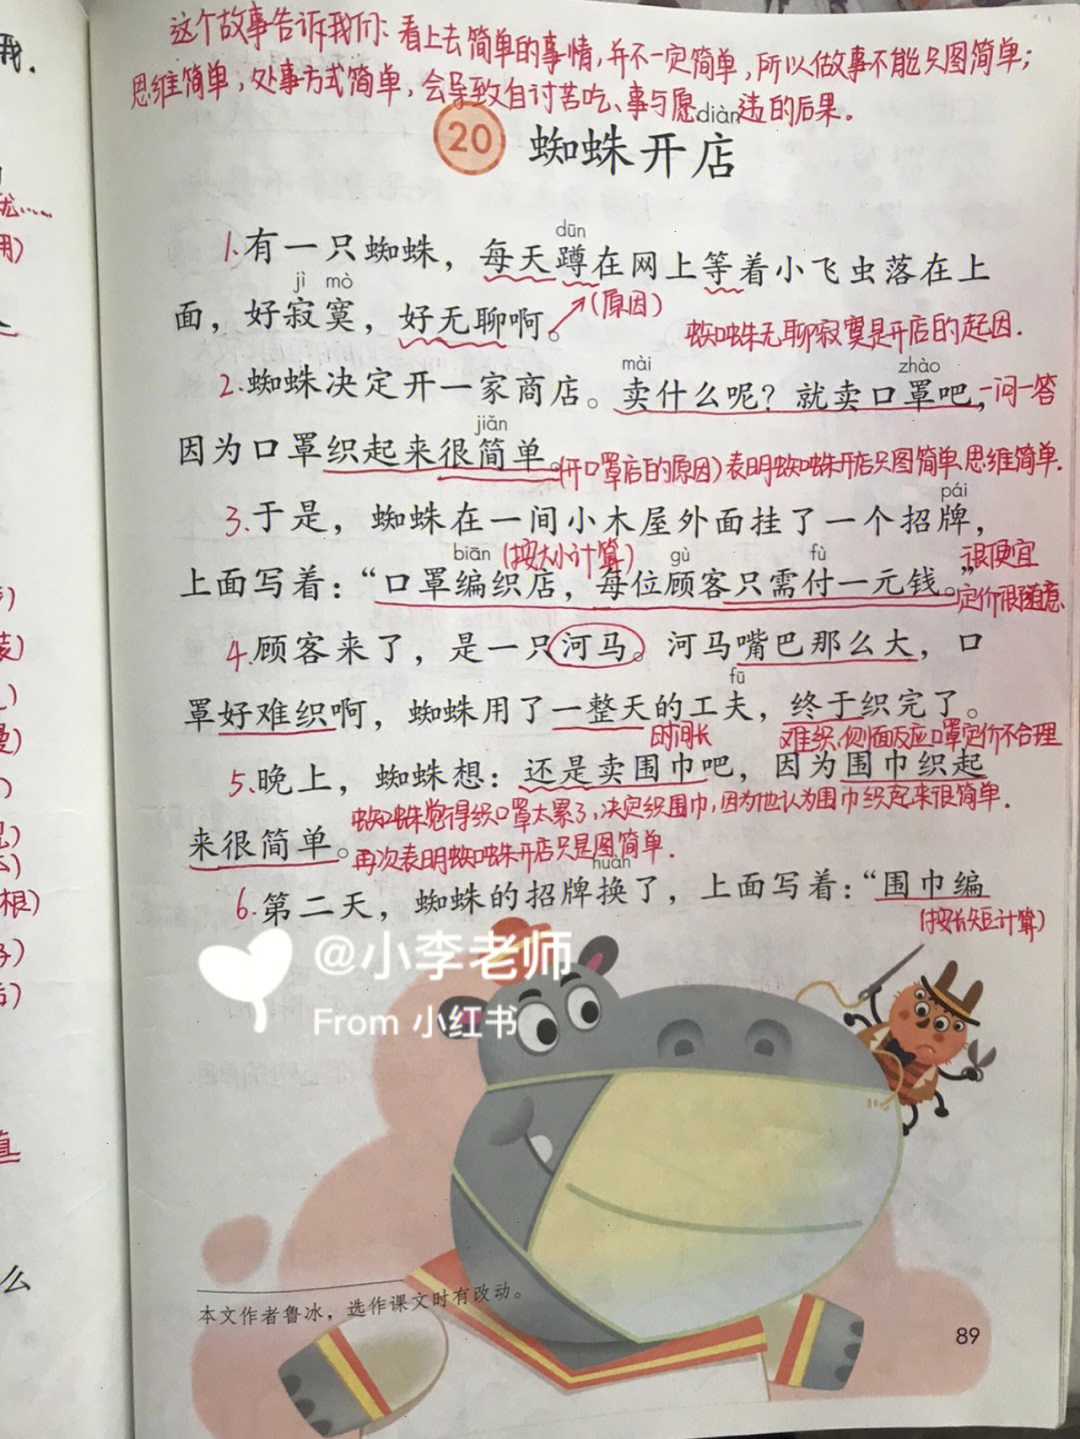 这个故事告诉我们：看上去简单的事情，并不一定简单，所以做故事不能只图简单；
思维简单，处事方式简单，会导致自讨苦吃、事与愿违的后果。
diàn
20 蜘蛛开店
dūn
1.有一只蜘蛛，每天蹲在网上等着小飞虫落在上
jì mò
面，好寂寞，好无聊啊。(原因)
蜘蛛无聊寂寞是开店的起因.
mài zhào
2.蜘蛛决定开一家商店。卖什么呢？就卖口罩吧，一问一答
jiǎn
因为口罩织起来很简单。(开口罩店的原因)表明蜘蛛开店只图简单、思维简单.
pái
3.于是，蜘蛛在一间小木屋外面挂了一个招牌，
biān (按大小计算) gù fù 很便宜
上面写着：“口罩编织店，每位顾客只需付一元钱。”定价很随意
4.顾客来了，是一只河马。河马嘴巴那么大，口
fū
罩好难织啊，蜘蛛用了一整天的工夫，终于织完了。
时间长 难织，侧面反应口罩定价不合理
5.晚上，蜘蛛想：还是卖围巾吧，因为围巾织起
蜘蛛觉得织口罩太累了，决定织围巾，因为他认为围巾织起来很简单.
来很简单。再次表明蜘蛛开店只是图简单.
huàn
6.第二天，蜘蛛的招牌换了，上面写着：“围巾编
(按长短计算)
@小李老师
From 小红书
本文作者鲁冰，选作课文时有改动。
89
我.
……
用)
)
装)
)
)
根)
)
)
直
么